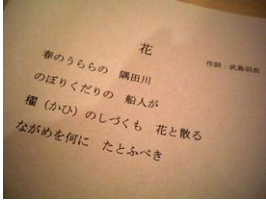 花
作詞:武島羽衣
春のうららの 隅田川
のぼりくだりの 船人が
櫂(かひ)のしづくも 花と散る
ながめを何に たとふべき